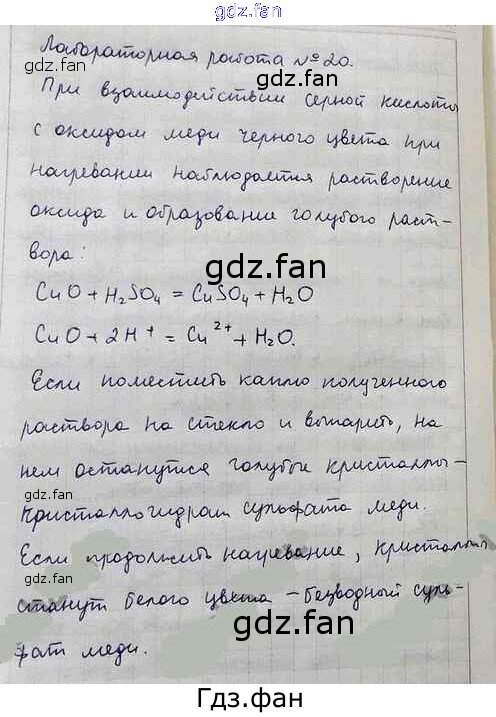 gdz.fan
Лабораторная работа №20.
gdz.fan
gdz.fan
При взаимодействии серной кислоты
с оксидом меди черного цвета при
нагревании наблюдается растворение
оксида и образование голубого раст-
вора:
gdz.fan
CuO + H₂SO₄ = CuSO₄ + H₂O
CuO + 2H⁺ = Cu²⁺ + H₂O.
Если поместить каплю полученного
раствора на стекло и выпарить, на
нем останутся голубые кристаллы –
gdz.fan
gdz.fan
кристаллогидрат сульфата меди.
Если продолжить нагревание, кристаллы
gdz.fan
станут белого цвета – безводный суль-
gdz.fan
фат меди.
Гдз.фан